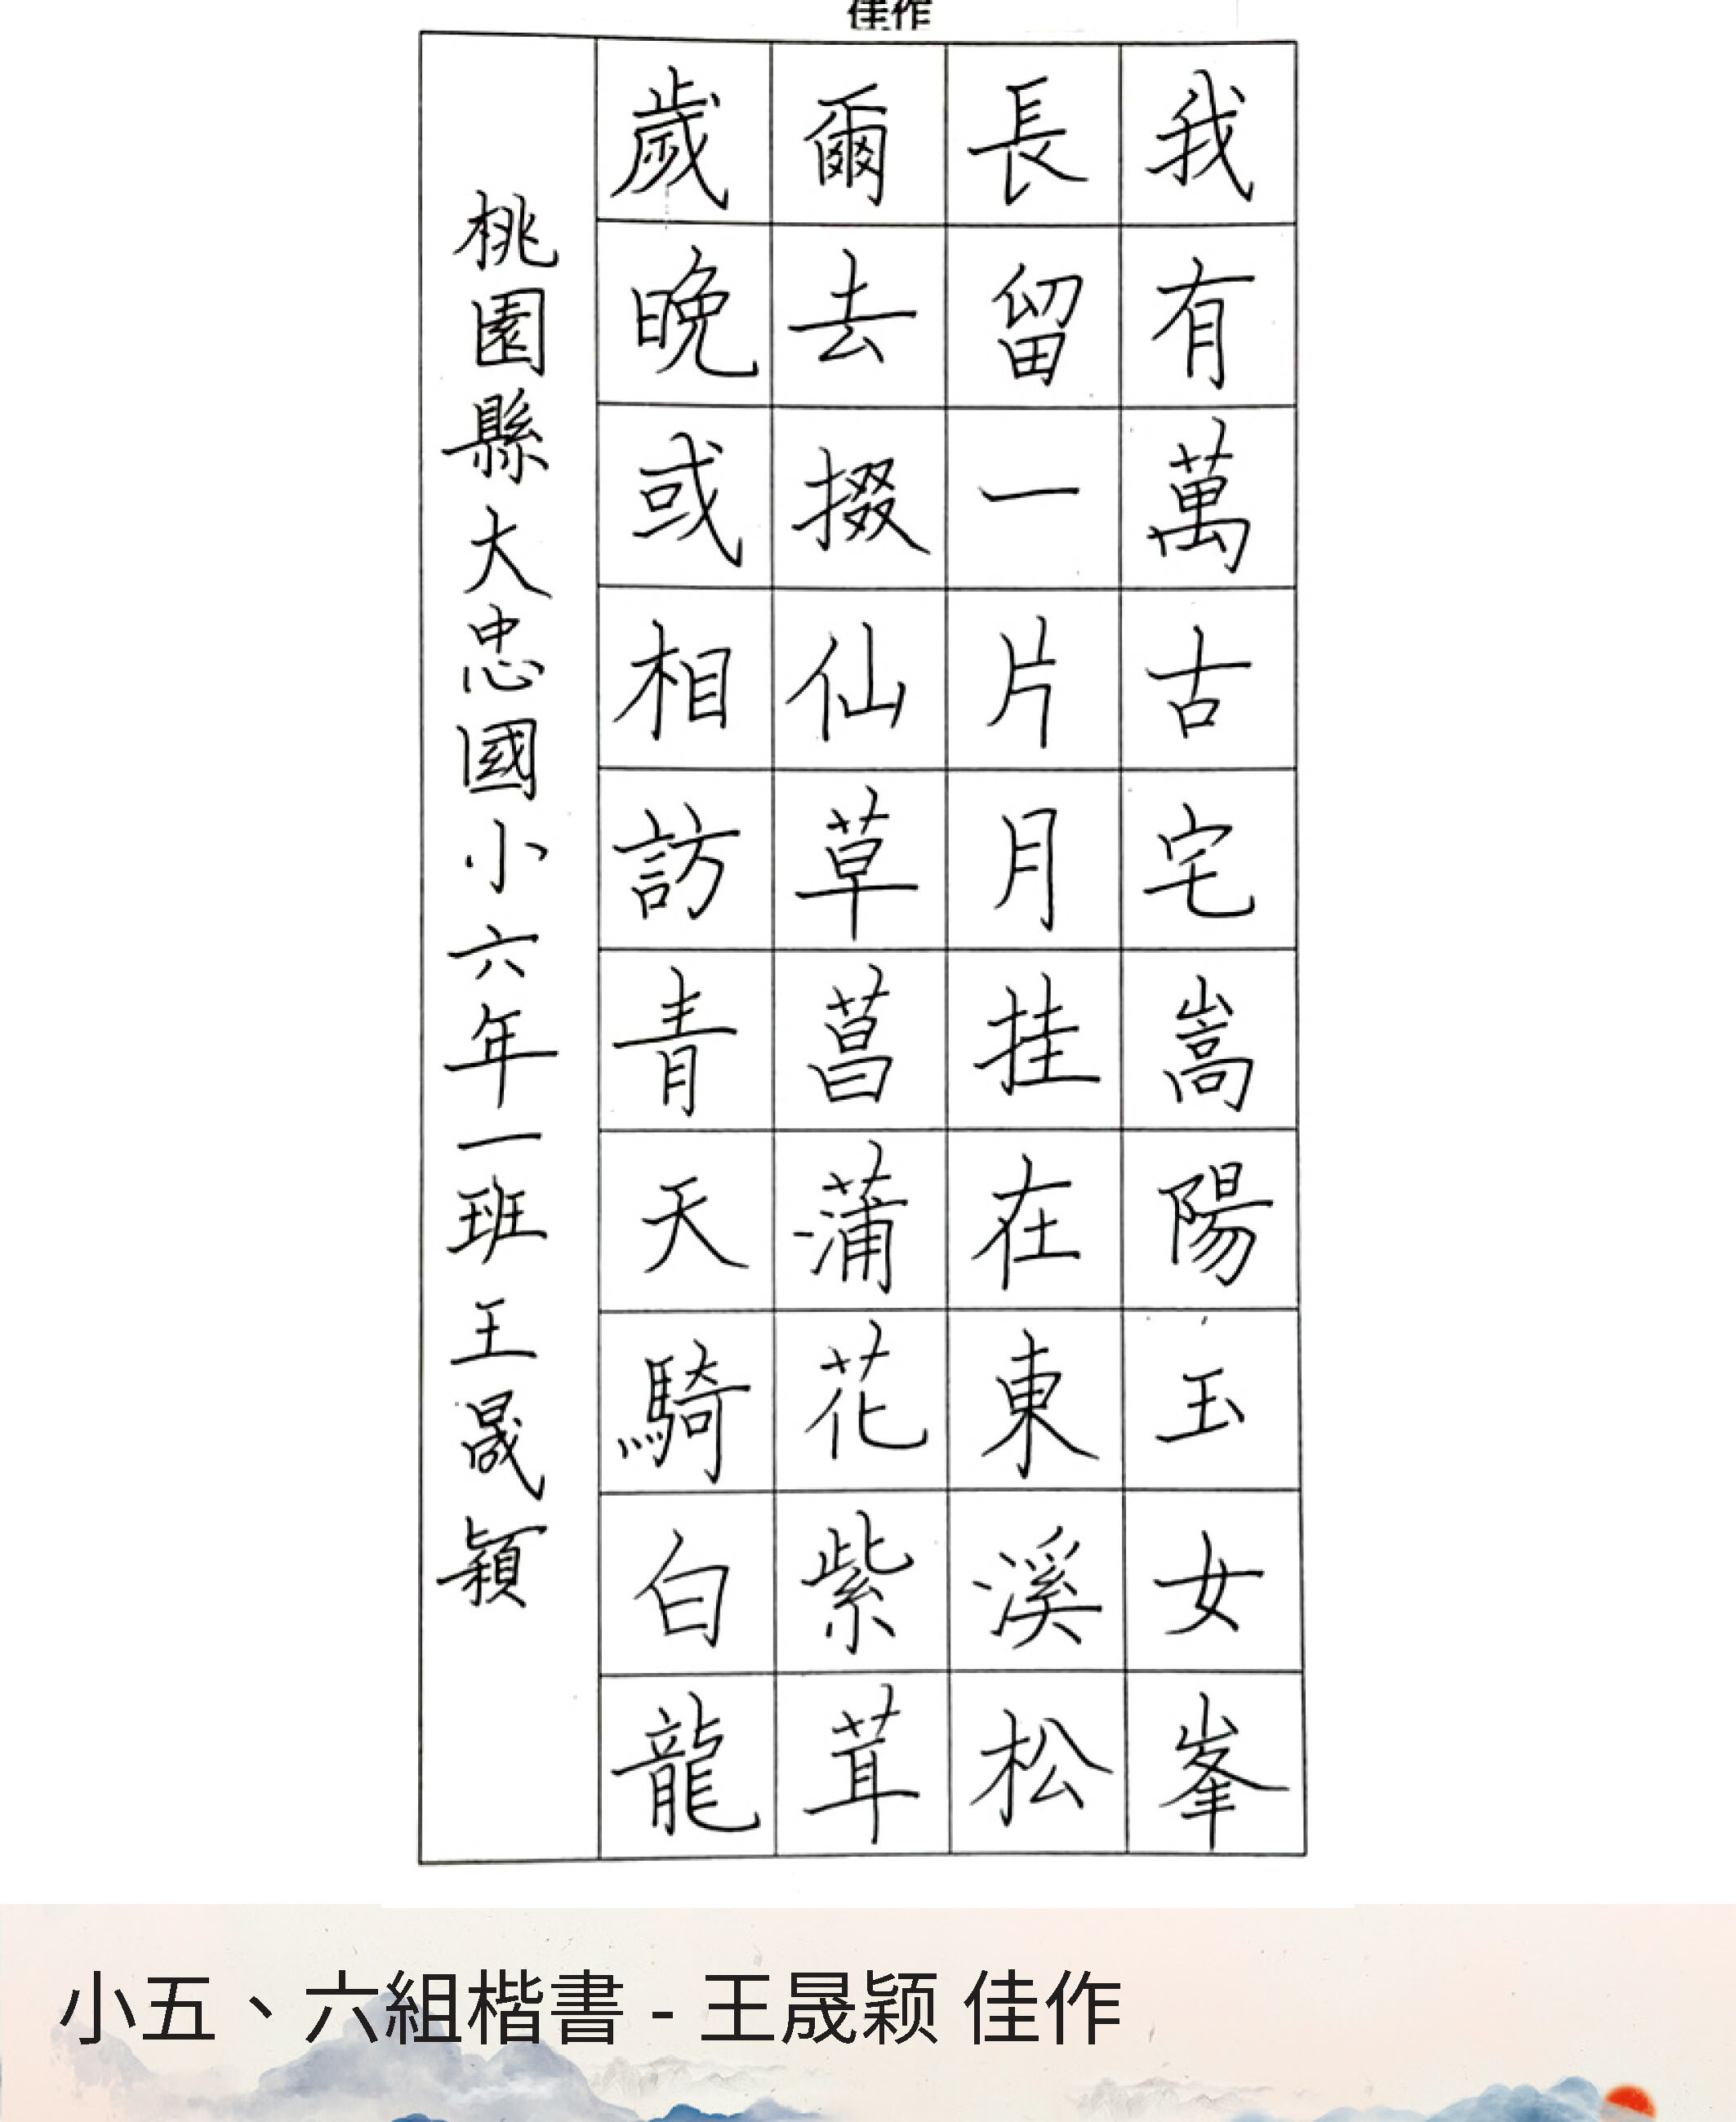 佳作
我有萬古宅嵩陽玉女峯
長留一片月挂在東溪松
爾去掇仙草菖蒲花紫茸
歲晚或相訪青天騎白龍
桃園縣大忠國小六年一班王晟穎
小五、六組楷書 - 王晟颖 佳作